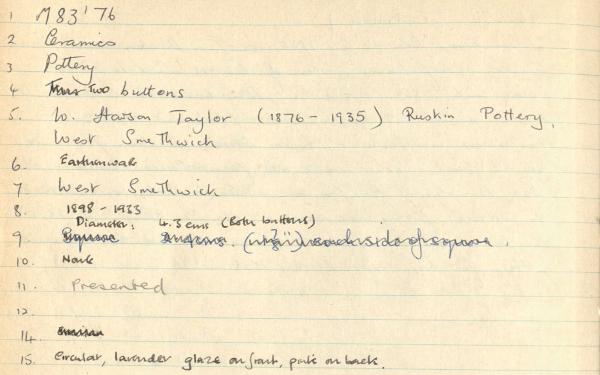 1 M83'76
2 Ceramics
3 Pottery
4 Two buttons
5. W. Howson Taylor (1876 - 1935) Ruskin Pottery,
West Smethwick
6. Earthenware
7 West Smethwick
8. 1898 - 1933
Diameter: 4.3 cms (Both buttons)
9 Square
10. None
11. Presented
12.
14.
15. Circular, lavender glaze on front, pink on back.